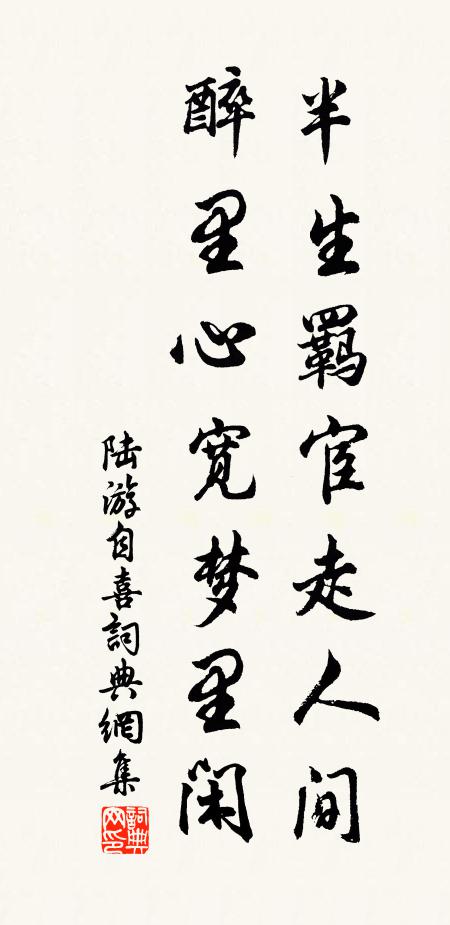 半生羁宦走人间
醉里心宽梦里闲
陆游自喜詞典網集
詞典网印